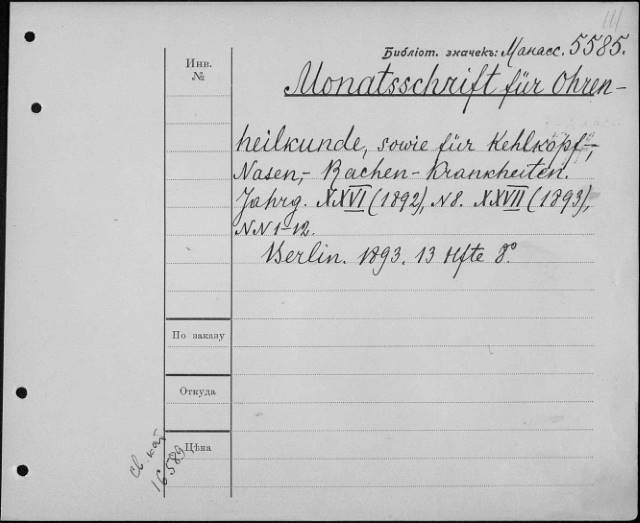 Библіот. значекъ: Манасс. 5585.
Инв.
№
Monatsschrift für Ohren-
heilkunde, sowie für Kehlkopf-,
Nasen,- Rachen-Krankheiten.
Jahrg. XXVI (1892), N8. XXVII (1893),
NN1-12.
Berlin. 1893. 13 Hfte 8°
По заказу
Откуда
Цѣна
16589